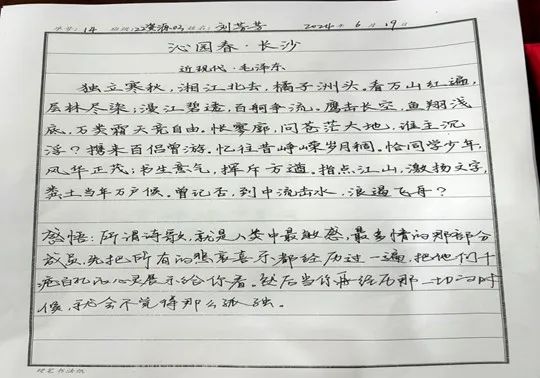 学号：14 班级：22资源03 姓名：刘芳芳 2024年6月19日
沁园春·长沙
近现代·毛泽东
独立寒秋，湘江北去，橘子洲头，看万山红遍，
层林尽染；漫江碧透，百舸争流。鹰击长空，鱼翔浅
底，万类霜天竞自由。怅寥廓，问苍茫大地，谁主沉
浮？携来百侣曾游。忆往昔峥嵘岁月稠。恰同学少年，
风华正茂；书生意气，挥斥方遒。指点江山，激扬文字，
粪土当年万户侯。曾记否，到中流击水，浪遏飞舟？
感悟：所谓诗歌，就是人类中最敏感，最多情的那部分
成员，先把所有的悲哀喜乐都经历过一遍，把他们千
疮百孔的心灵展示给你看。然后当你再经历那一切的时
候，就会不觉得那么孤独。
硬笔书法纸